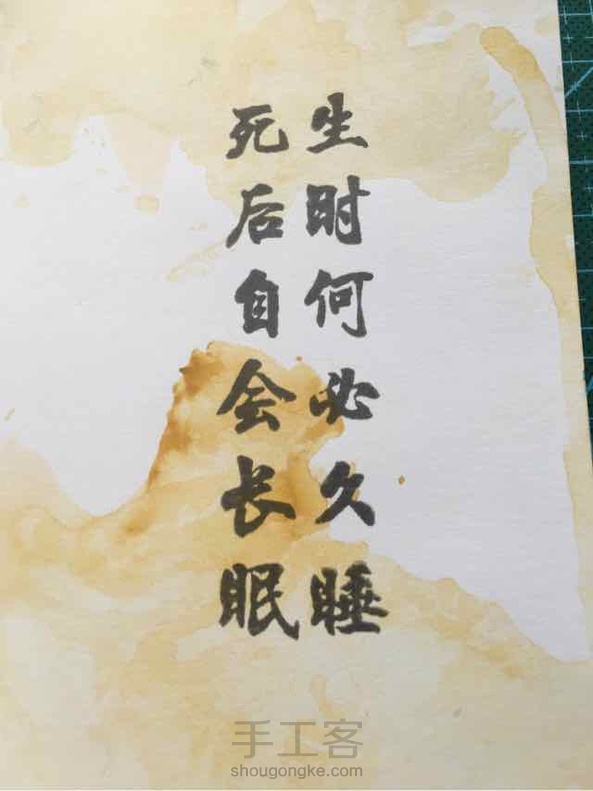 生时何必久睡
死后自会长眠
手工客
shougongke.com